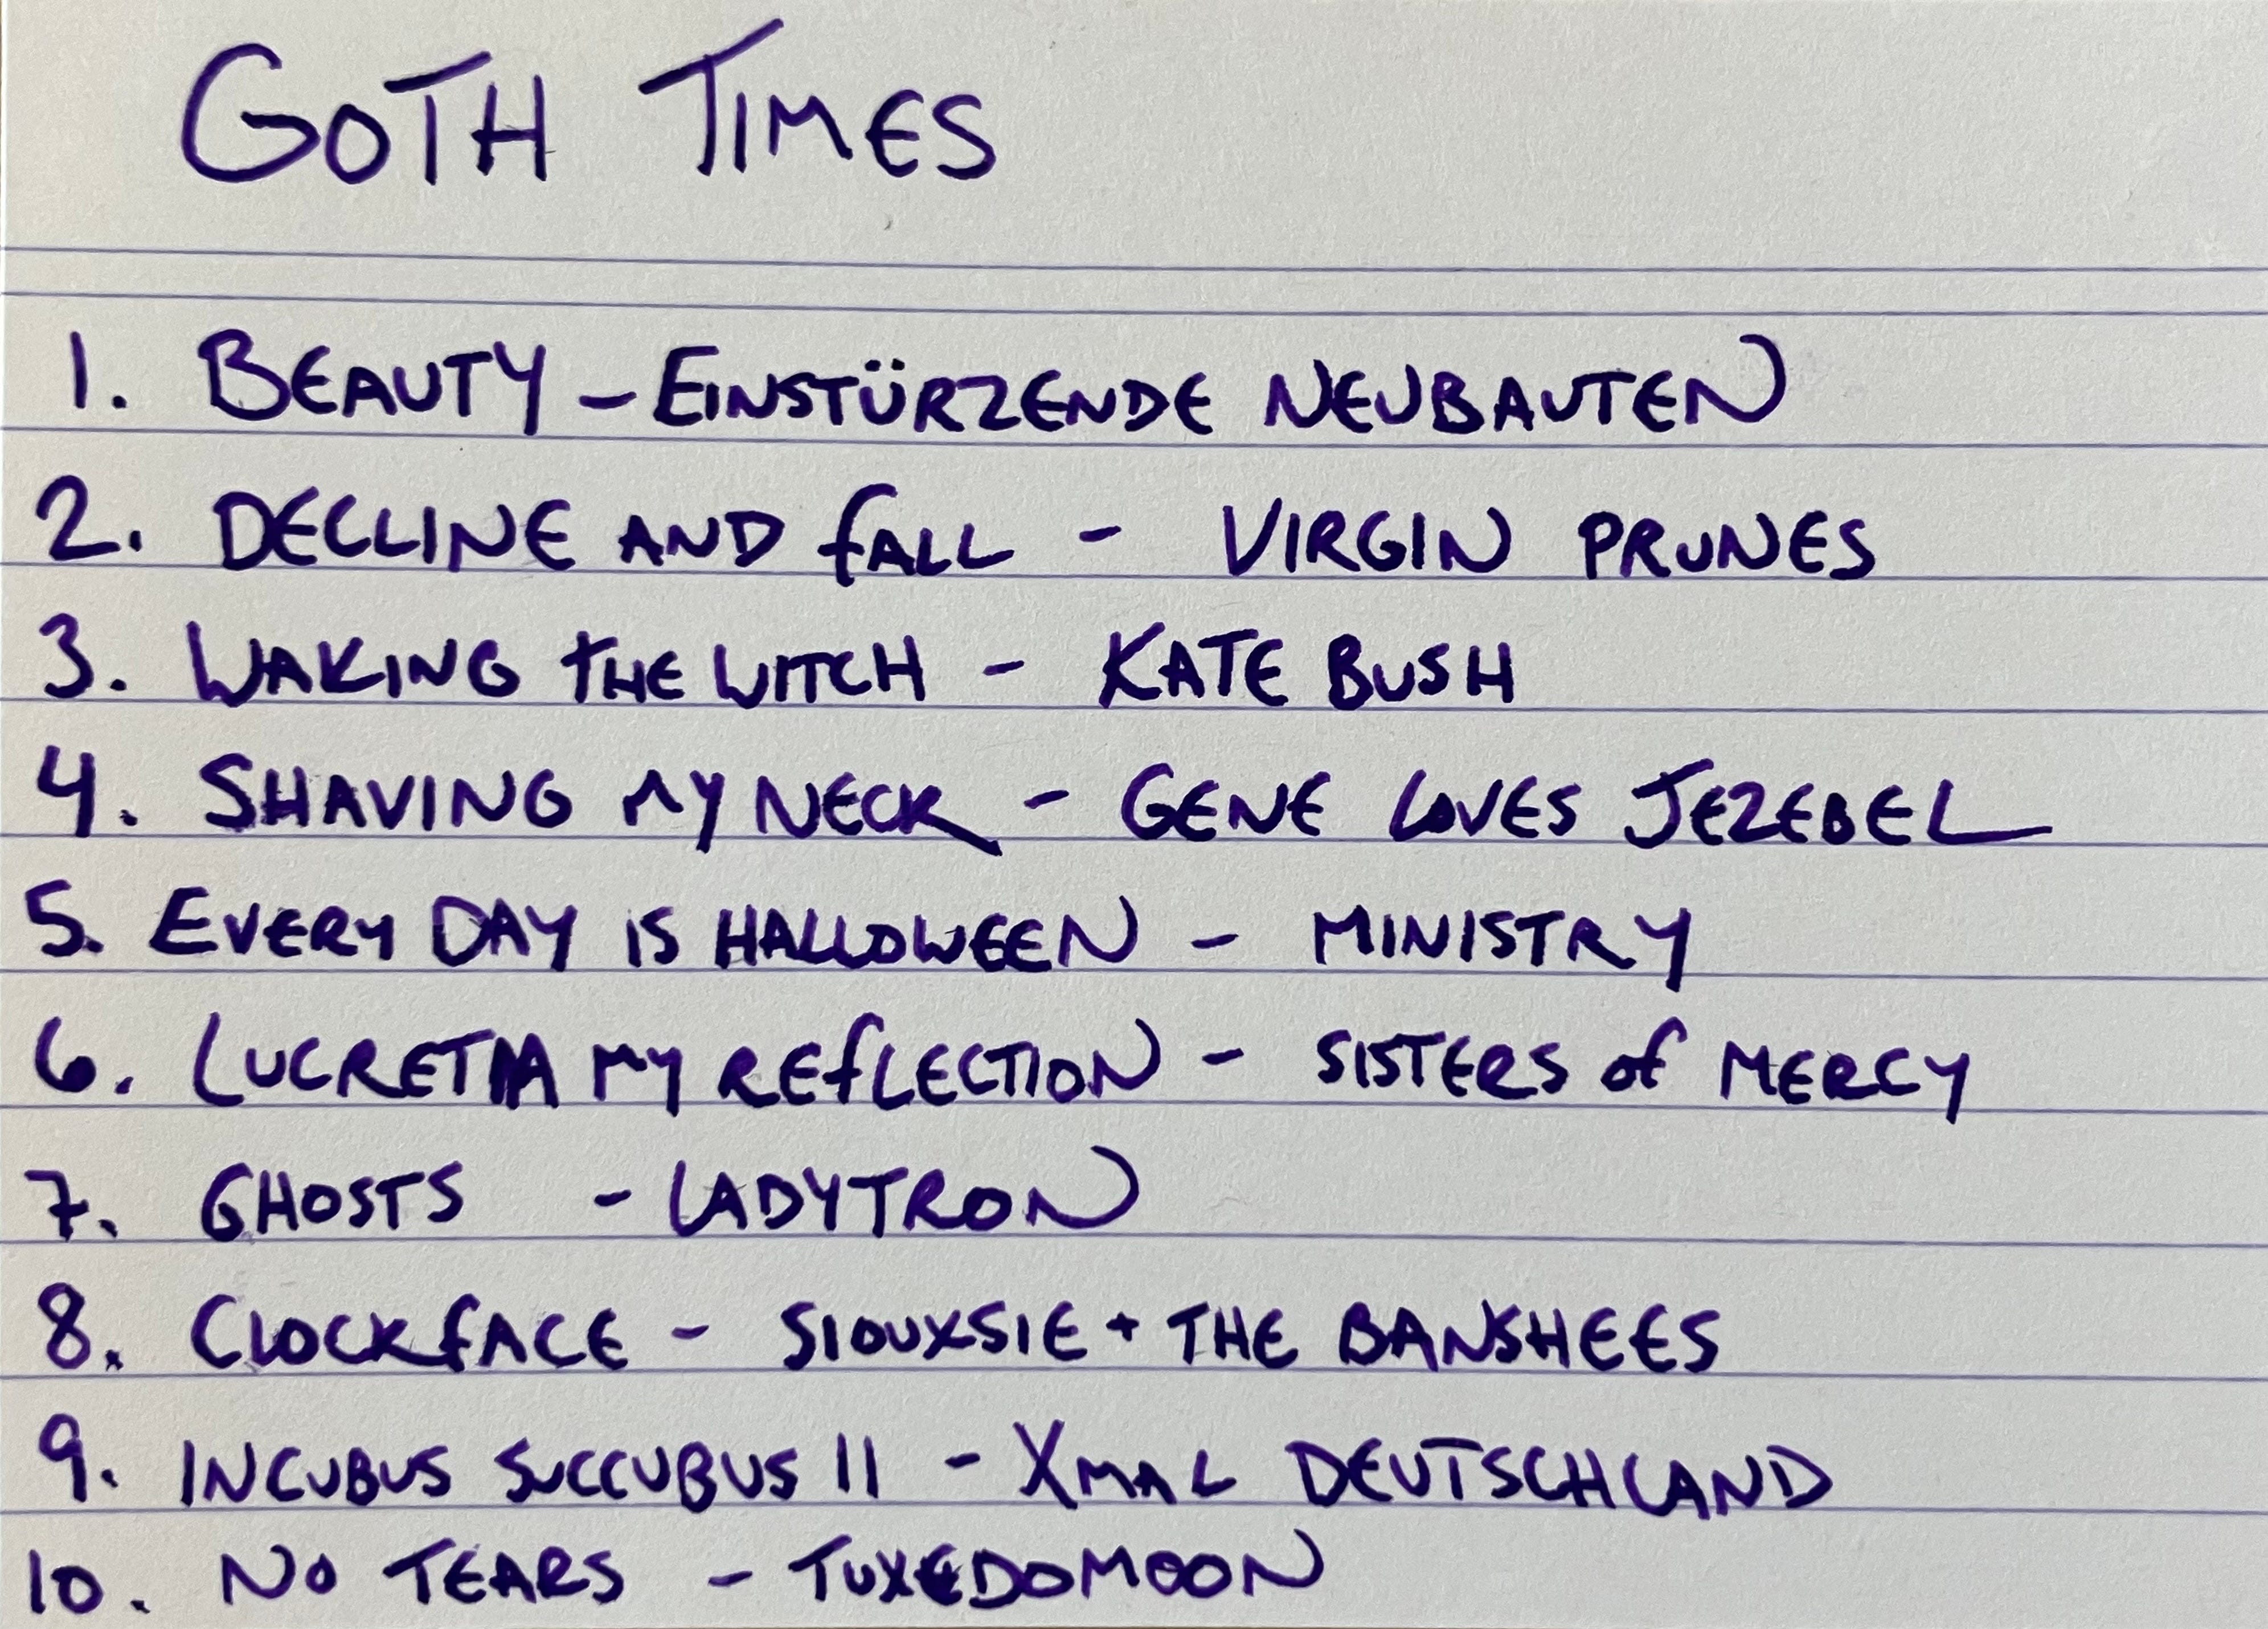 GOTH TIMES
1. BEAUTY - EINSTÜRZENDE NEUBAUTEN
2. DECLINE AND FALL - VIRGIN PRUNES
3. WAKING THE WITCH - KATE BUSH
4. SHAVING MY NECK - GENE LOVES JEZEBEL
5. EVERY DAY IS HALLOWEEN - MINISTRY
6. LUCRETIA MY REFLECTION - SISTERS OF MERCY
7. GHOSTS - LADYTRON
8. CLOCKFACE - SIOUXSIE + THE BANSHEES
9. INCUBUS SUCCUBUS II - XMAL DEUTSCHLAND
10. NO TEARS - TUXEDOMOON